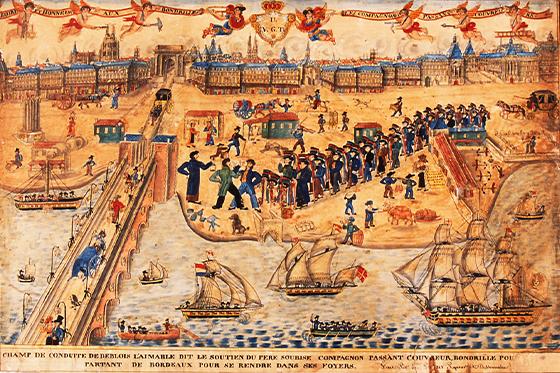 A LA BONDRILLE COMPAGNON PASSANT COUVREUR
V.G.T.
CHAMP DE CONDUITE DE DEBLOIS L'AIMABLE DIT LE SOUTIEN DU PERE SOUBISE COMPAGNON PASSANT COUVREUR, BONDRILLE POU
PARTANT DE BORDEAUX POUR SE RENDRE DANS SES FOYERS.